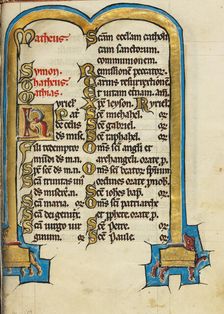 Matheus.
Symon.
Thatheus.
Mathias.
Kyriel.
Pat de celis
ds mis.
Fili redemptor
mūdi ds m. n.
Sps sce ds m. n.
Sca trinitas un
ds miserē. n.
Sca maria. or
Sca dei genitrix.
Sca uirgo uir
ginum.
Scam ecclam catholi
cam sanctorum
communionem
Remissionē peccator.
Carnis resurrectionē
et uitam etnam am̄.
Xpeleyson. Kyriel.
Sce michahel.
Sce gabriel.
Sce raphahel.
Oms sci angli et
archangeli orate p.
Oms sci beator spirituū
ordines orate p nob.
Sce iohes bapt.
Oms sci patriarche
et pphete. orate. p.
Sce Petre.
Sce Paule.